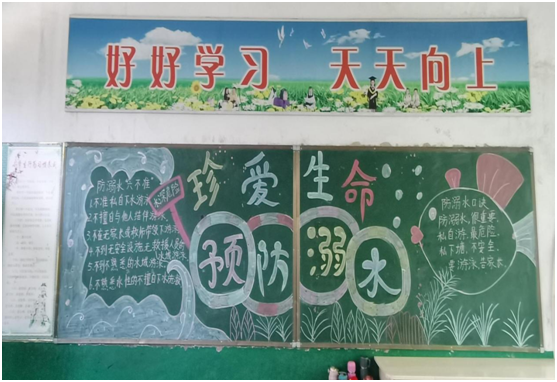 好好学习 天天向上
珍爱生命
预防溺水
防溺水"六不准"
1.不准私自下水游泳
2.不擅自与他人结伴游泳
3.不在无家长或教师带领下游泳
4.不到无安全设施、无救援人员的
水域游泳
5.不到不熟悉的水域游泳
6.不熟悉水性的不擅自下水施救
防溺水口诀
防溺水,很重要,
私自游,最危险。
私下塘,不安全,
要游泳,告家长。